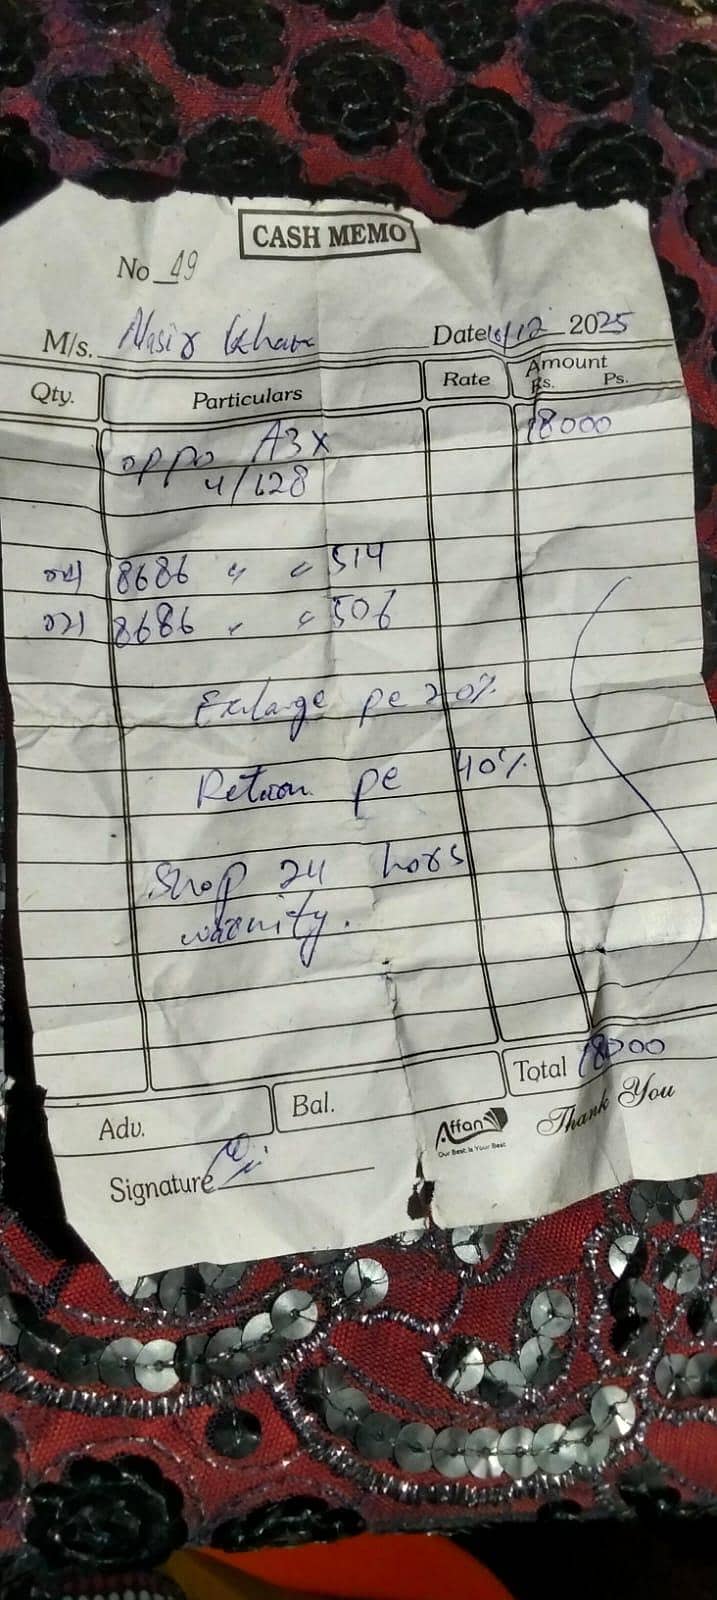 CASH MEMO
No 49
M/s. Nasir Khan Date 10/12 2025
Qty. Particulars Rate Amount
Rs. Ps.
oppo A3x 18000
4/128
8686 " " 514
8686 " " 506
Exchange pe 20%
Retoon pe 40%
Shop 24 hors
warnity.
Total 18000
Adv. Bal.
Affan
Our Best is Your Best
Thank You
Signature